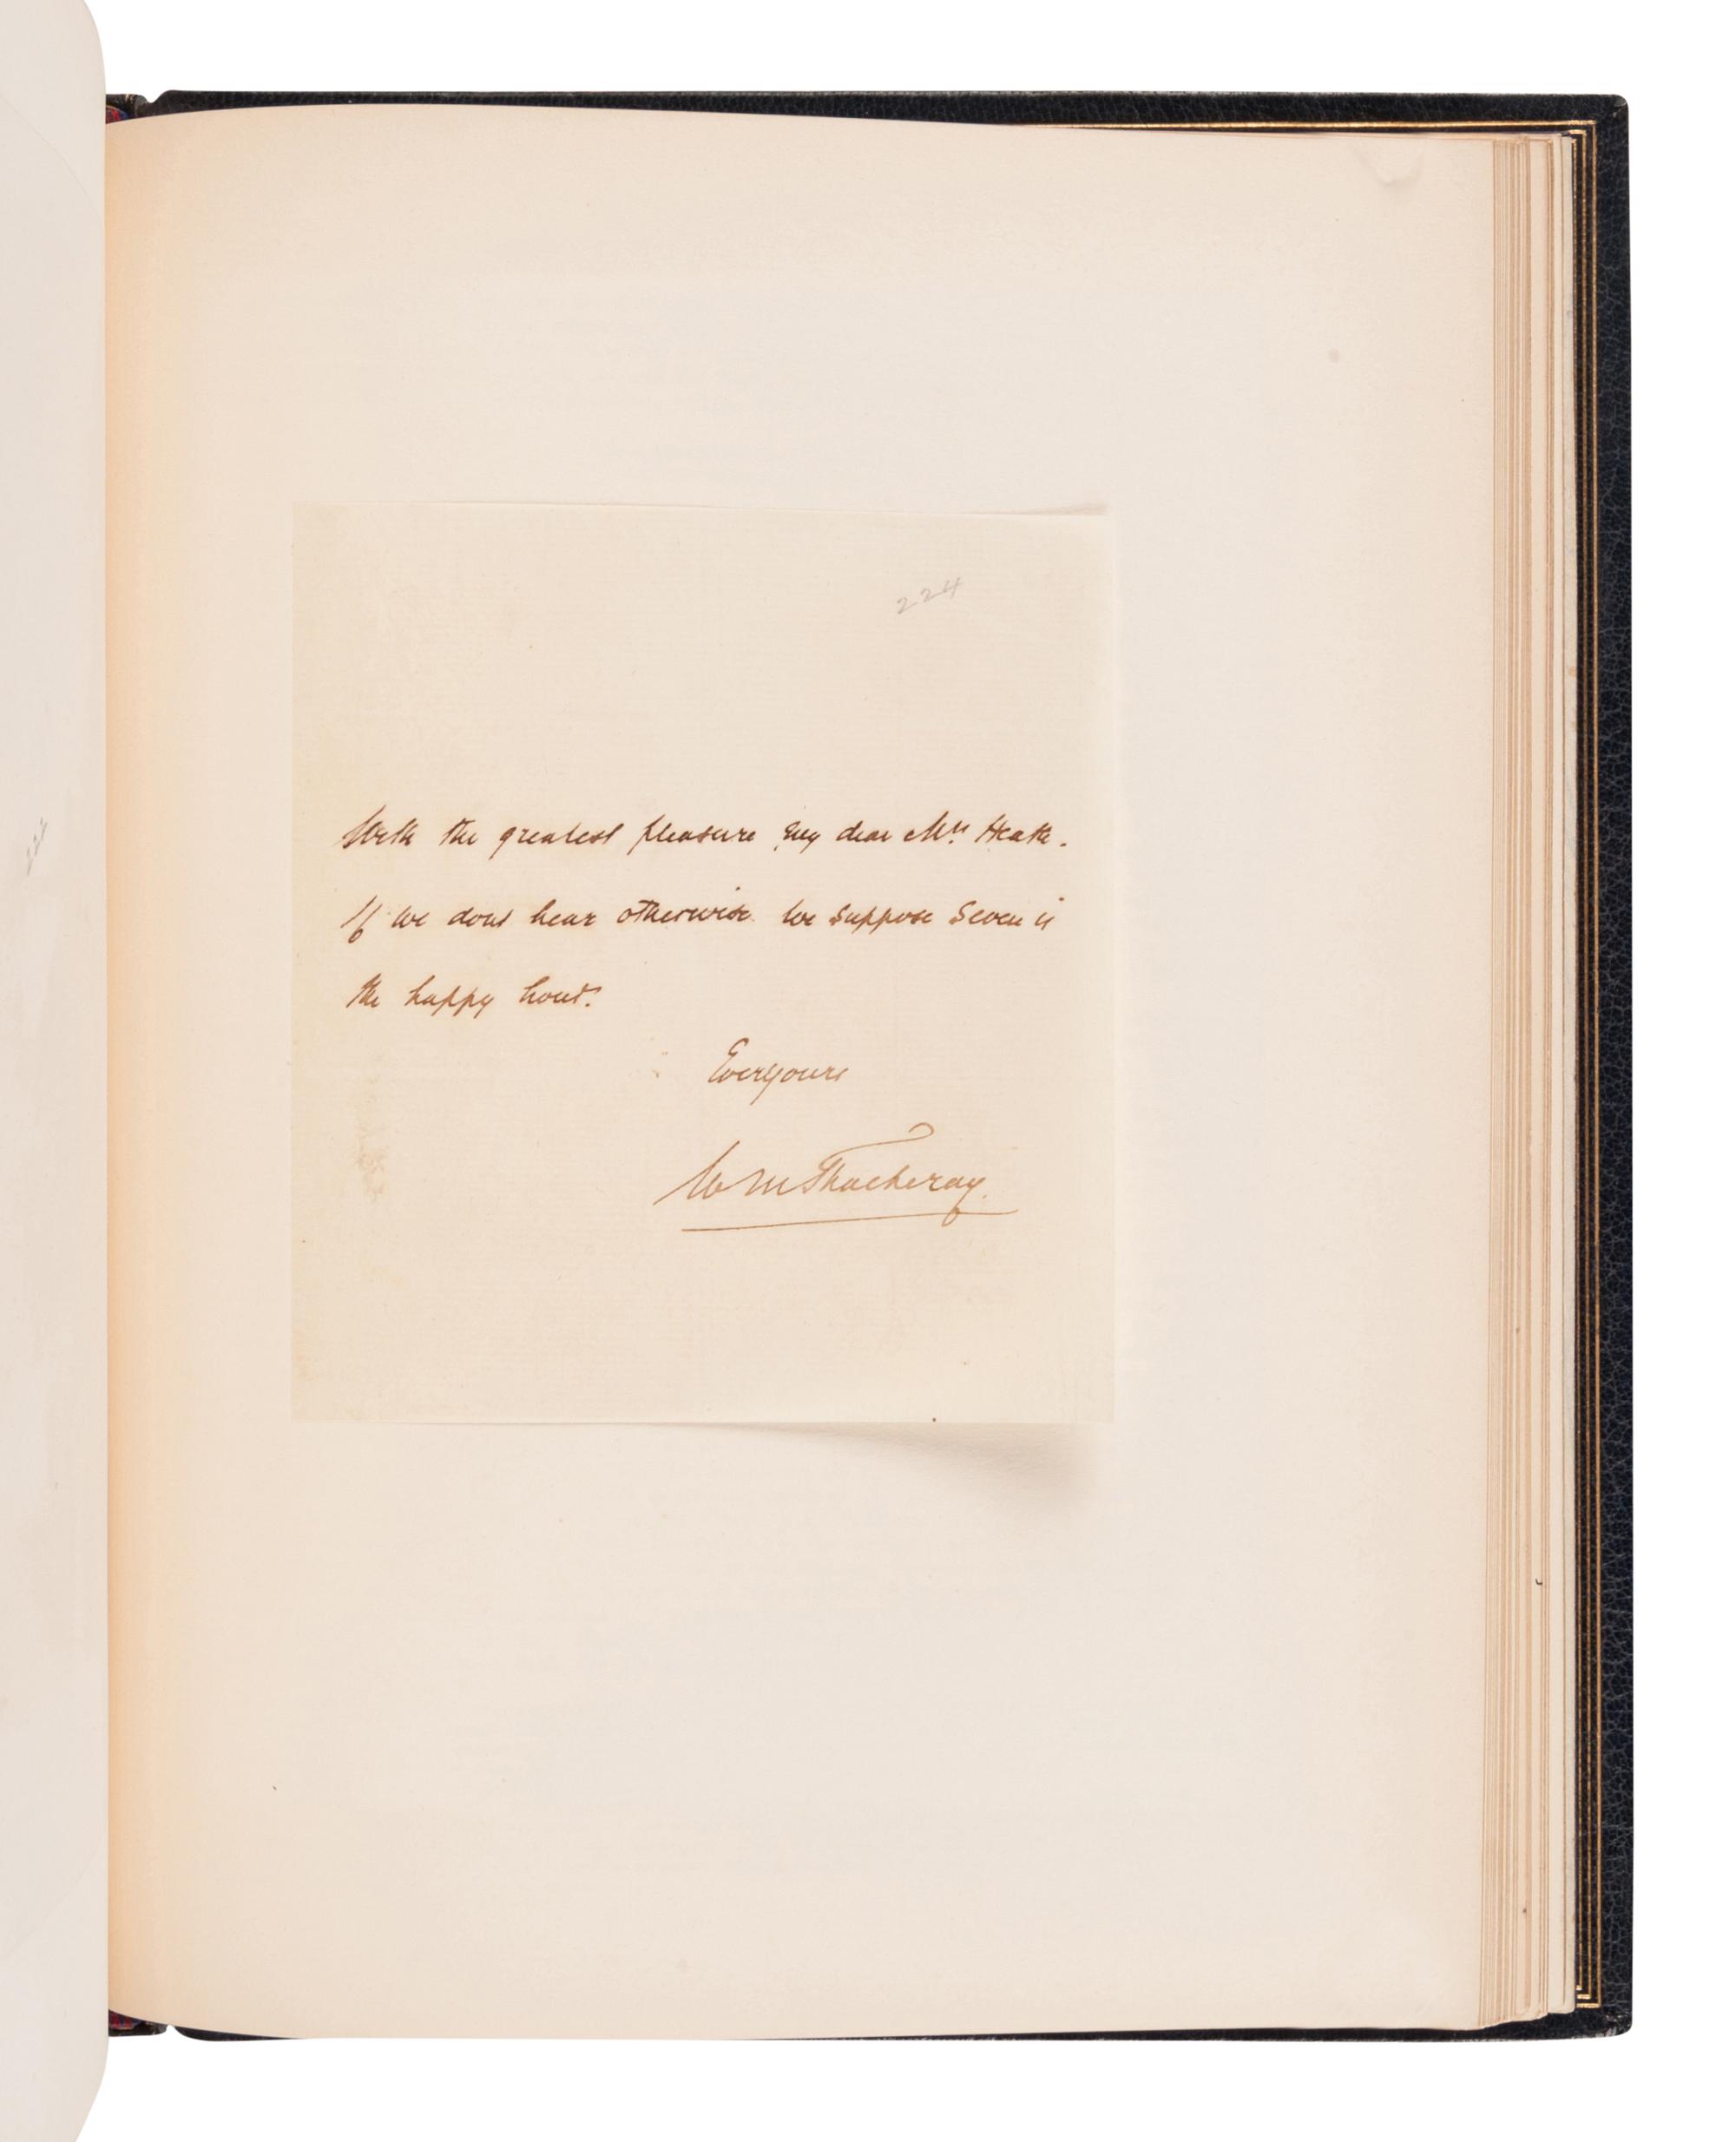 224
With the greatest pleasure my dear Mrs. Heath.
If we dont hear otherwise we suppose Seven is
the happy hour.
Ever yours
W M Thackeray.